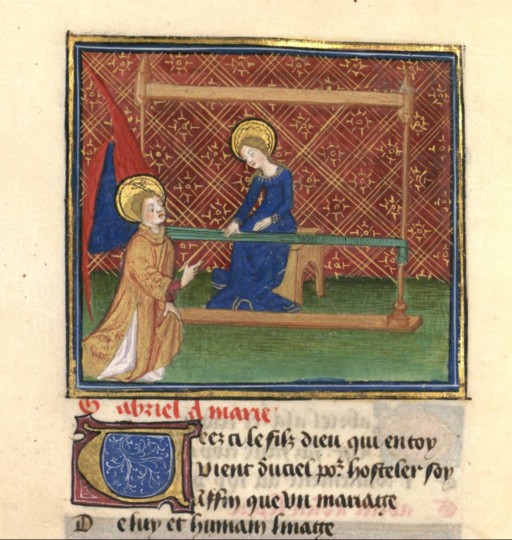 Gabriel a marie
Veez ci le filz dieu qui en toy
Vient du ciel por hosteler soy
Affin que vn mariage
De luy et humain linage